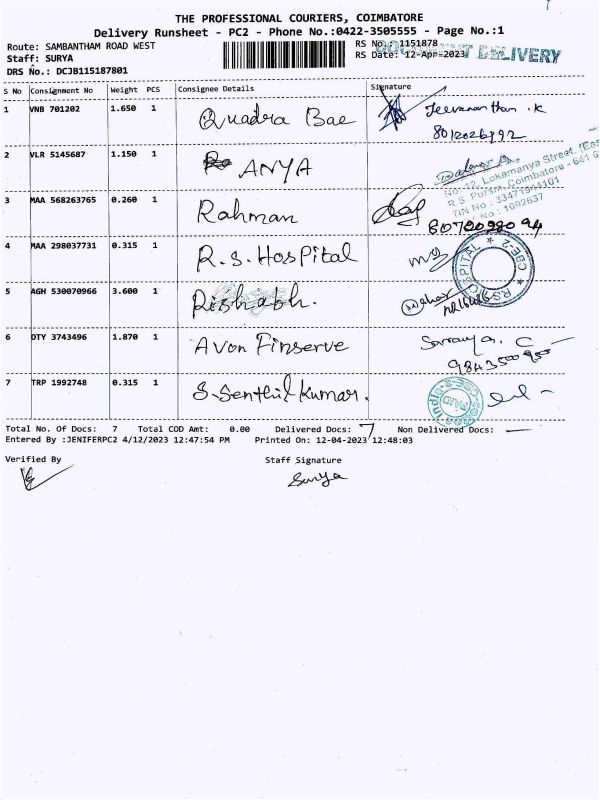 THE PROFESSIONAL COURIERS, COIMBATORE
Delivery Runsheet - PC2 - Phone No.:0422-3505555 - Page No.:1
Route: SAMBANTHAM ROAD WEST RS No.: 1151878
Staff: SURYA RS Date: 12-Apr-2023 DELIVERY
DRS No.: DCJB115187801
S No Consignment No Weight PCS Consignee Details Signature
1 VNB 701202 1.650 1 Quadra Bae Jeevananthan .K
2 VLR 5145687 1.150 1 ANYA
No: 17, Lokamanya Street (East
R.S. Puram, Coimbatore - 641 0
TIN No : 33471944101
No : 1092637
3 MAA 568263765 0.260 1 Rahman
4 MAA 298037731 0.315 1 R.S. Hospital
HOSPITAL * CBE-2 *
5 AGH 530070966 3.600 1 Rishabh.
6 OTY 3743496 1.870 1 Avon Finserve Saranya. C
7 TRP 1992748 0.315 1 S. Senthil Kumar.
PAID
Total No. Of Docs: 7 Total COD Amt: 0.00 Delivered Docs: 7 Non Delivered Docs: —
Entered By :JENIFERPC2 4/12/2023 12:47:54 PM Printed On: 12-04-2023 12:48:03
Verified By Staff Signature
Surya